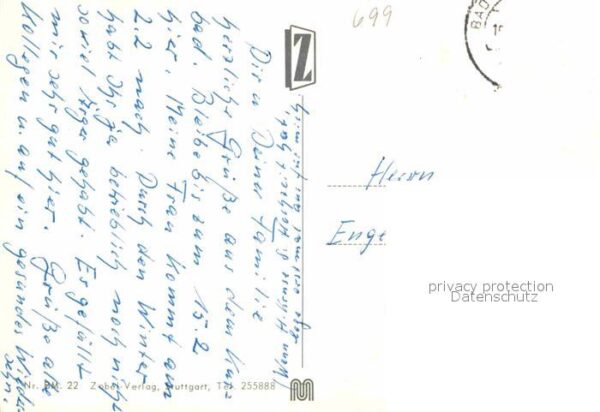 699
BAD
Z
Dir u Deiner Familie
herzliche Grüße aus dem Kur=
bad. Bleibe bis zum 15.2
hier. Meine Frau kommt am
2.2 nach. Durch den Winter
habt Ihr ja betrieblich noch nicht
soviel Ärger gehabt. Es gefällt
mir sehr gut hier. Grüße alle
Kollegen u. auf ein gesundes Wieder=
sehn.
Herrn
Enge
privacy protection
Datenschutz
Nr. BM. 22 Zobel-Verlag, Stuttgart, Tel. 255888